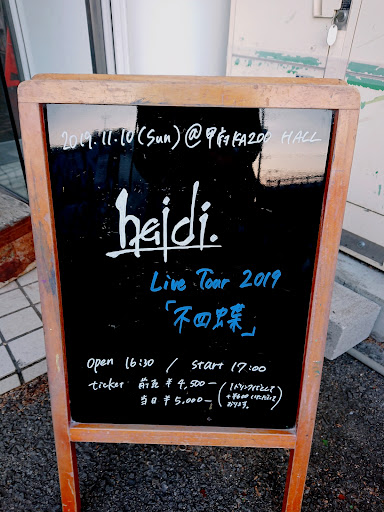 2019.11.10 (Sun) @ 甲府KAZOO HALL
heidi.
Live Tour 2019
「不四蝶」
open 16:30 / start 17:00
ticket 前売 ¥4,500-
当日 ¥5,000-
(1ドリンクオーダーとして
+¥600いただいて
おります。)